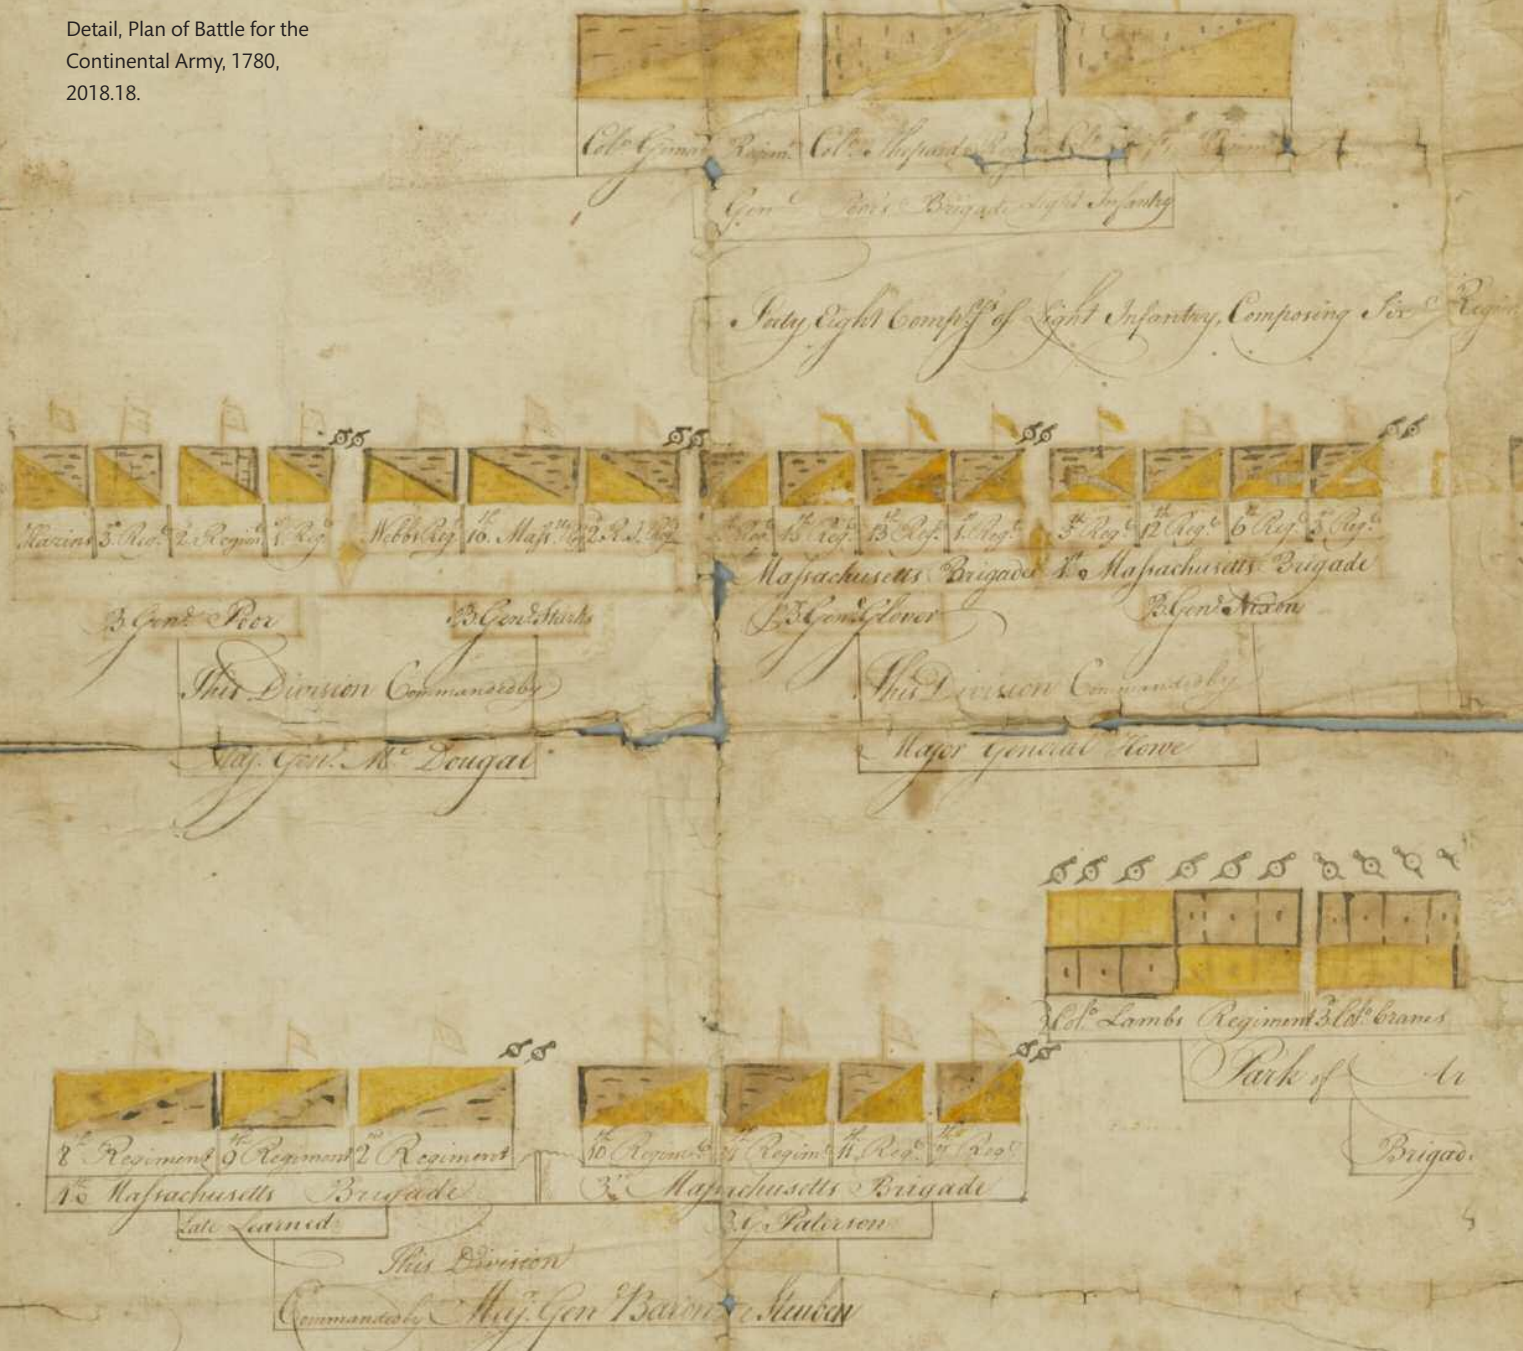 Detail, Plan of Battle for the
Continental Army, 1780,
2018.18.
Colo. Regimt. Colo. Shepards
Genl. Poor's Brigade Light Infantry
Forty Eight Compys. of Light Infantry, Composing Six Regim
Hazins 3d Regt. 2 Regimt. 1 Regt.
Webbs Regt 16th Masstts Regt 2 R.I. Regt
15th Regt. 13th Regt. 1 Regt.
3th Regt. 12th Regt. 6th Regt. 5th Regt.
Massachusetts Brigade
1st Massachusetts Brigade
B. Genl. Poor
B. Genl. Starks
B. Genl. Glover
B. Genl. Nixon
This Division Commanded by
Maj. Genl. Mc Dougal
This Division Commanded by
Major General Howe
2 Colo. Lambs Regiment 3 Colo. Cranes
Park of Ar
Brigad
8th Regiment 9th Regiment 2nd Regiment
10th Regimt. Regimt. 11th Regt. 7th Regt.
4th Massachusetts Brigade
3d Massachusetts Brigade
Late Learned
B. G. Paterson
This Division
Commanded by Maj. Genl Baron De Steuben